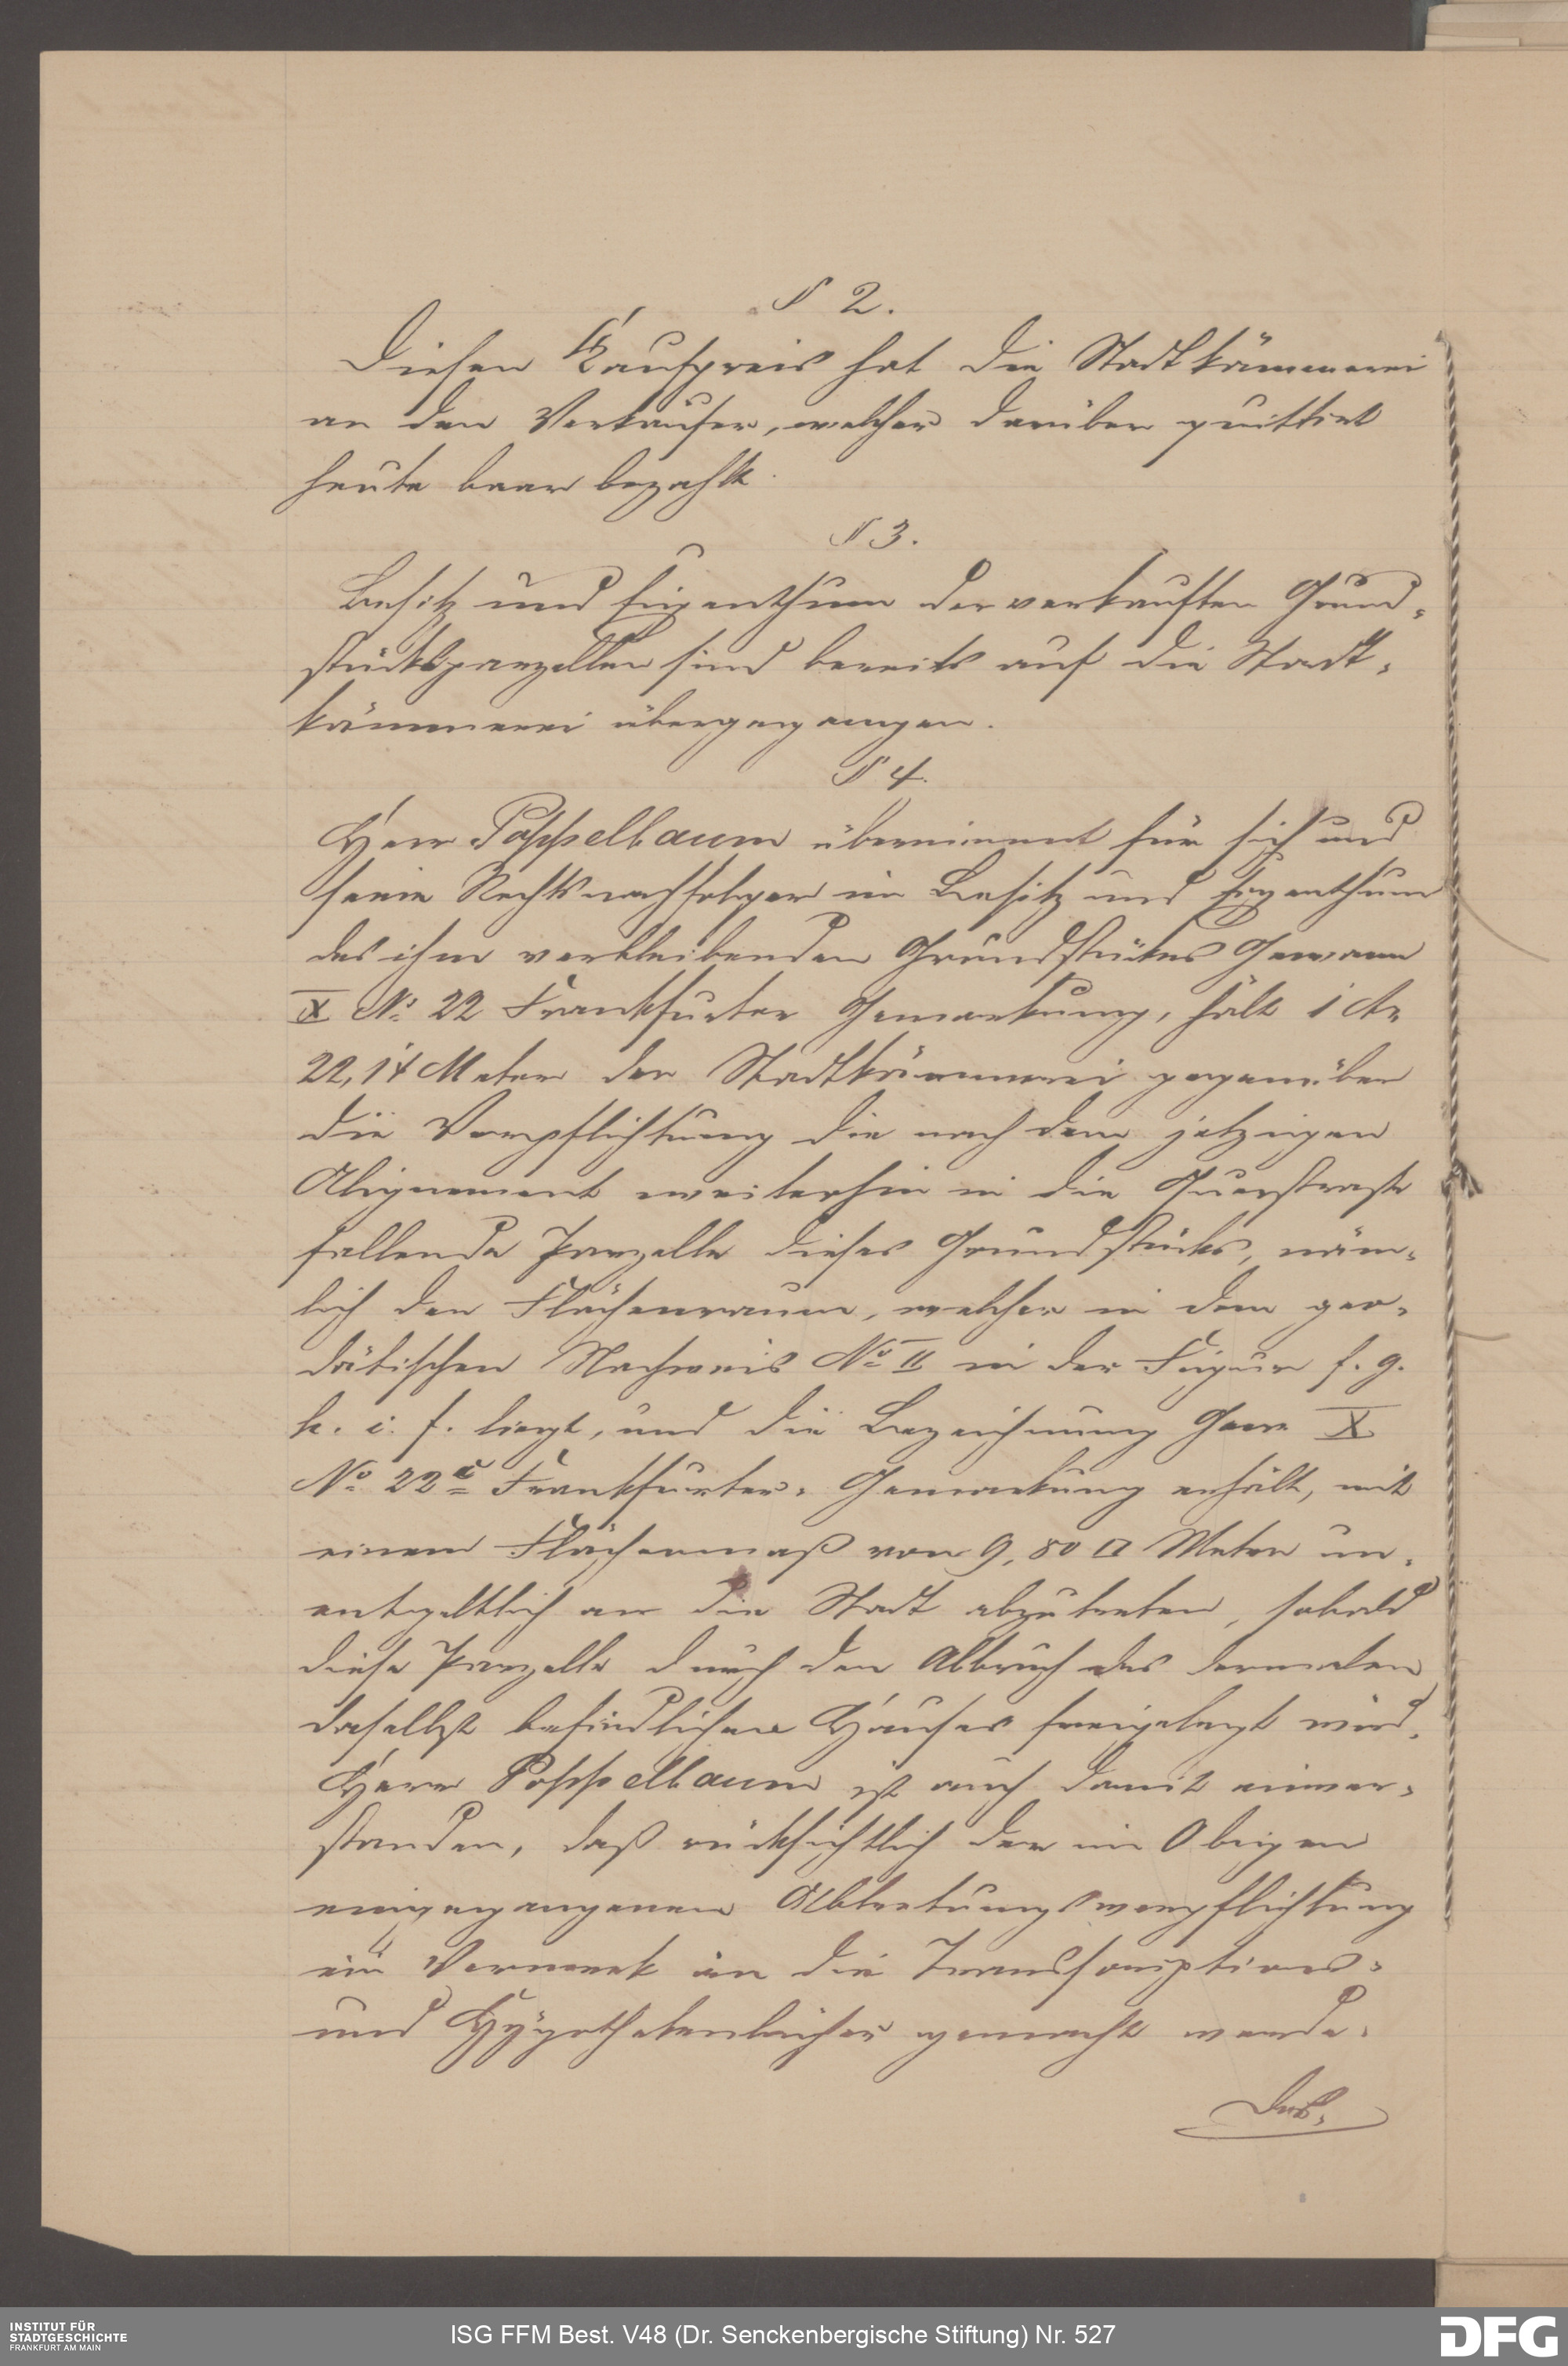 § 2.
Diesen Kaufpreis hat die Stadtkämmerei
an den Verkäufer, welcher darüber quittirt
heute baar bezahlt.
§ 3.
Besitz und Eigenthum der verkauften Grund-
stücksparzellen sind bereits auf die Stadt-
kämmerei übergegangen.
§ 4.
Herr Poppelbaum übernimmt für sich und
seine Rechtsnachfolger im Besitz und Eigenthum
des ihm verbleibenden Grundstückes Gewann
X No. 22 Frankfurter Gemarkung, hält 1 Ar
22,14 Meter der Stadtkämmerei gegenüber
die Verpflichtung die nach dem jetzigen
Alignement weiterhin in die Querstraße
fallende Parzelle dieses Grundstücks, näm-
lich den Flächenraum, welcher in dem geo-
dätischen Nachweis No. II in der Figur f. g.
h. i. f. liegt, und die Bezeichnung Gew. X
No. 22c Frankfurter-Gemarkung erhält, mit
einem Flächenmaß von 9,80 □ Meter un-
entgeltlich an die Stadt abzutreten, sobald
diese Parzelle durch den Abbruch des dermalen
daselbst befindlichen Hauses freigelegt wird.
Herr Poppelbaum ist auch damit einver-
standen, daß rücksichtlich der im Obigen
eingegangenen Abtretungsverpflichtung
ein Vermerk in die Transscriptions-
und Hypothekenbücher gemacht werde.
INSTITUT FÜR
STADTGESCHICHTE
FRANKFURT AM MAIN
ISG FFM Best. V48 (Dr. Senckenbergische Stiftung) Nr. 527
DFG